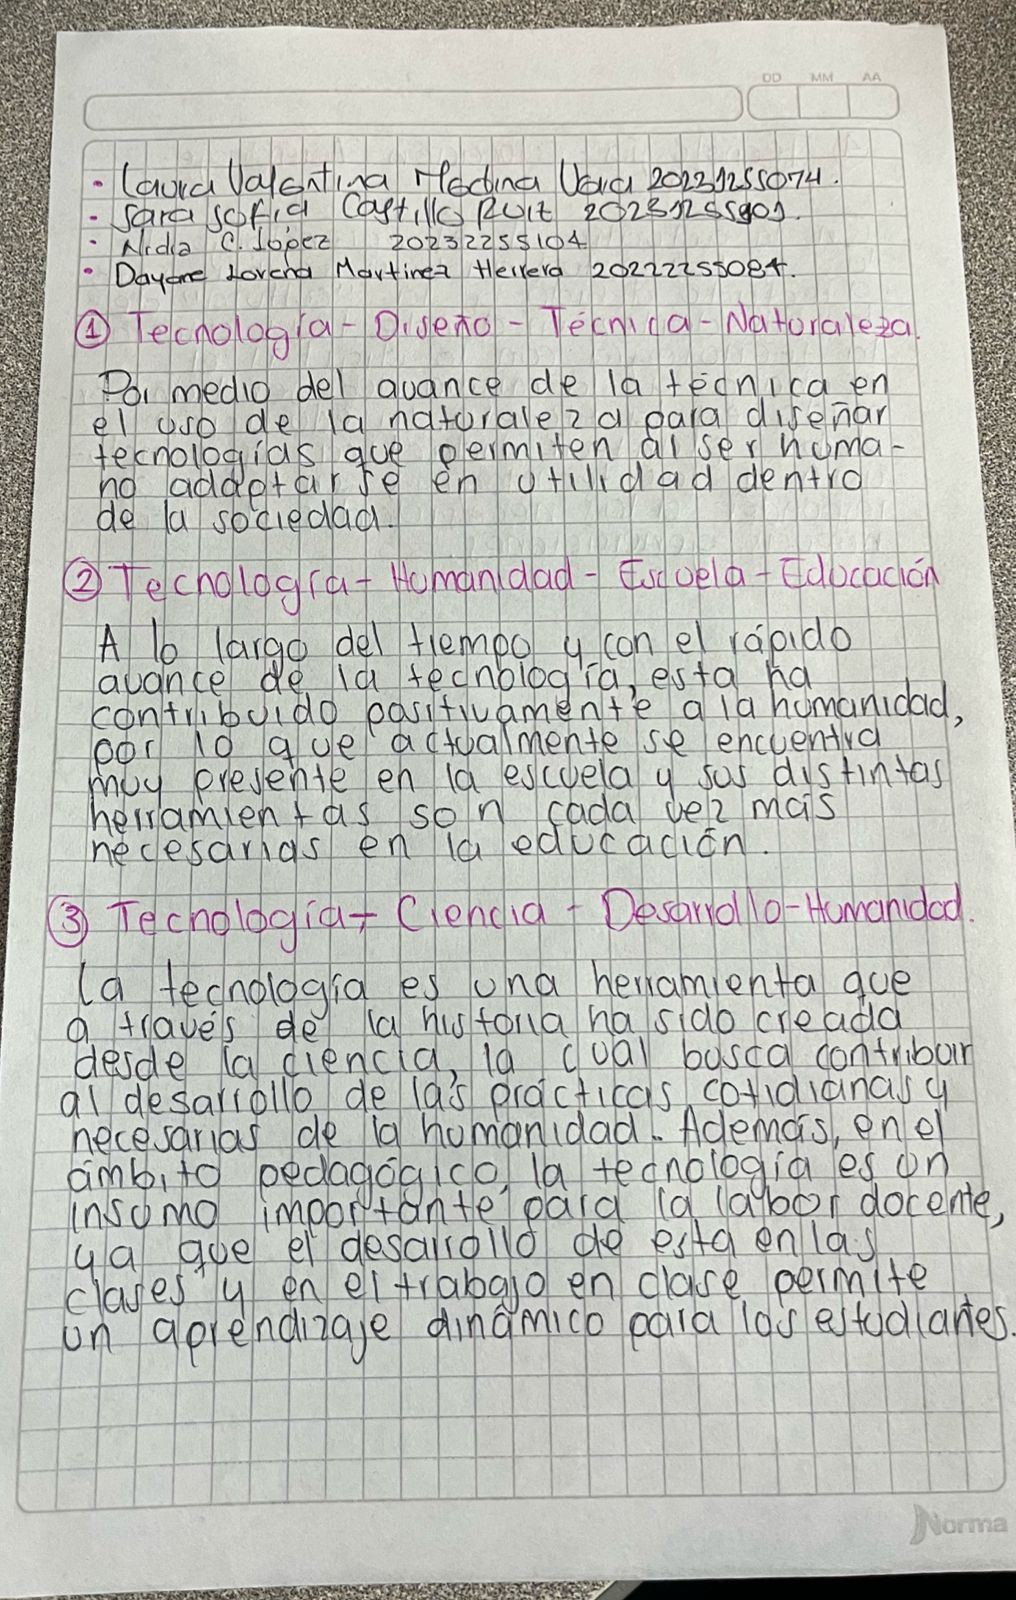 DD MM AA
• Laura Valentina Medina Vera 20231255074.
• Sara Sofia Castillo Ruiz
• Nidia C. López 20232255104
• Dayane Lorena Martinez Herrera 20222255084.
① Tecnología - Diseño - Técnica - Naturaleza.
Por medio del avance de la técnica en
el uso de la naturaleza para diseñar
tecnologías que permiten al ser huma-
no adaptarse en utilidad dentro
de la sociedad.
② Tecnología - Humanidad - Escuela - Educación
A lo largo del tiempo y con el rápido
avance de la tecnología, esta ha
contribuido positivamente a la humanidad,
por lo que actualmente se encuentra
muy presente en la escuela y sus distintas
herramientas son cada vez más
necesarias en la educación.
③ Tecnología - Ciencia - Desarrollo - Humanidad.
La tecnología es una herramienta que
a través de la historia ha sido creada
desde la ciencia, la cual busca contribuir
al desarrollo de las prácticas cotidianas y
necesarias de la humanidad. Además, en el
ámbito pedagógico, la tecnología es un
insumo importante para la labor docente,
ya que el desarrollo de esta en las
clases y en el trabajo en clase permite
un aprendizaje dinámico para los estudiantes.
Norma